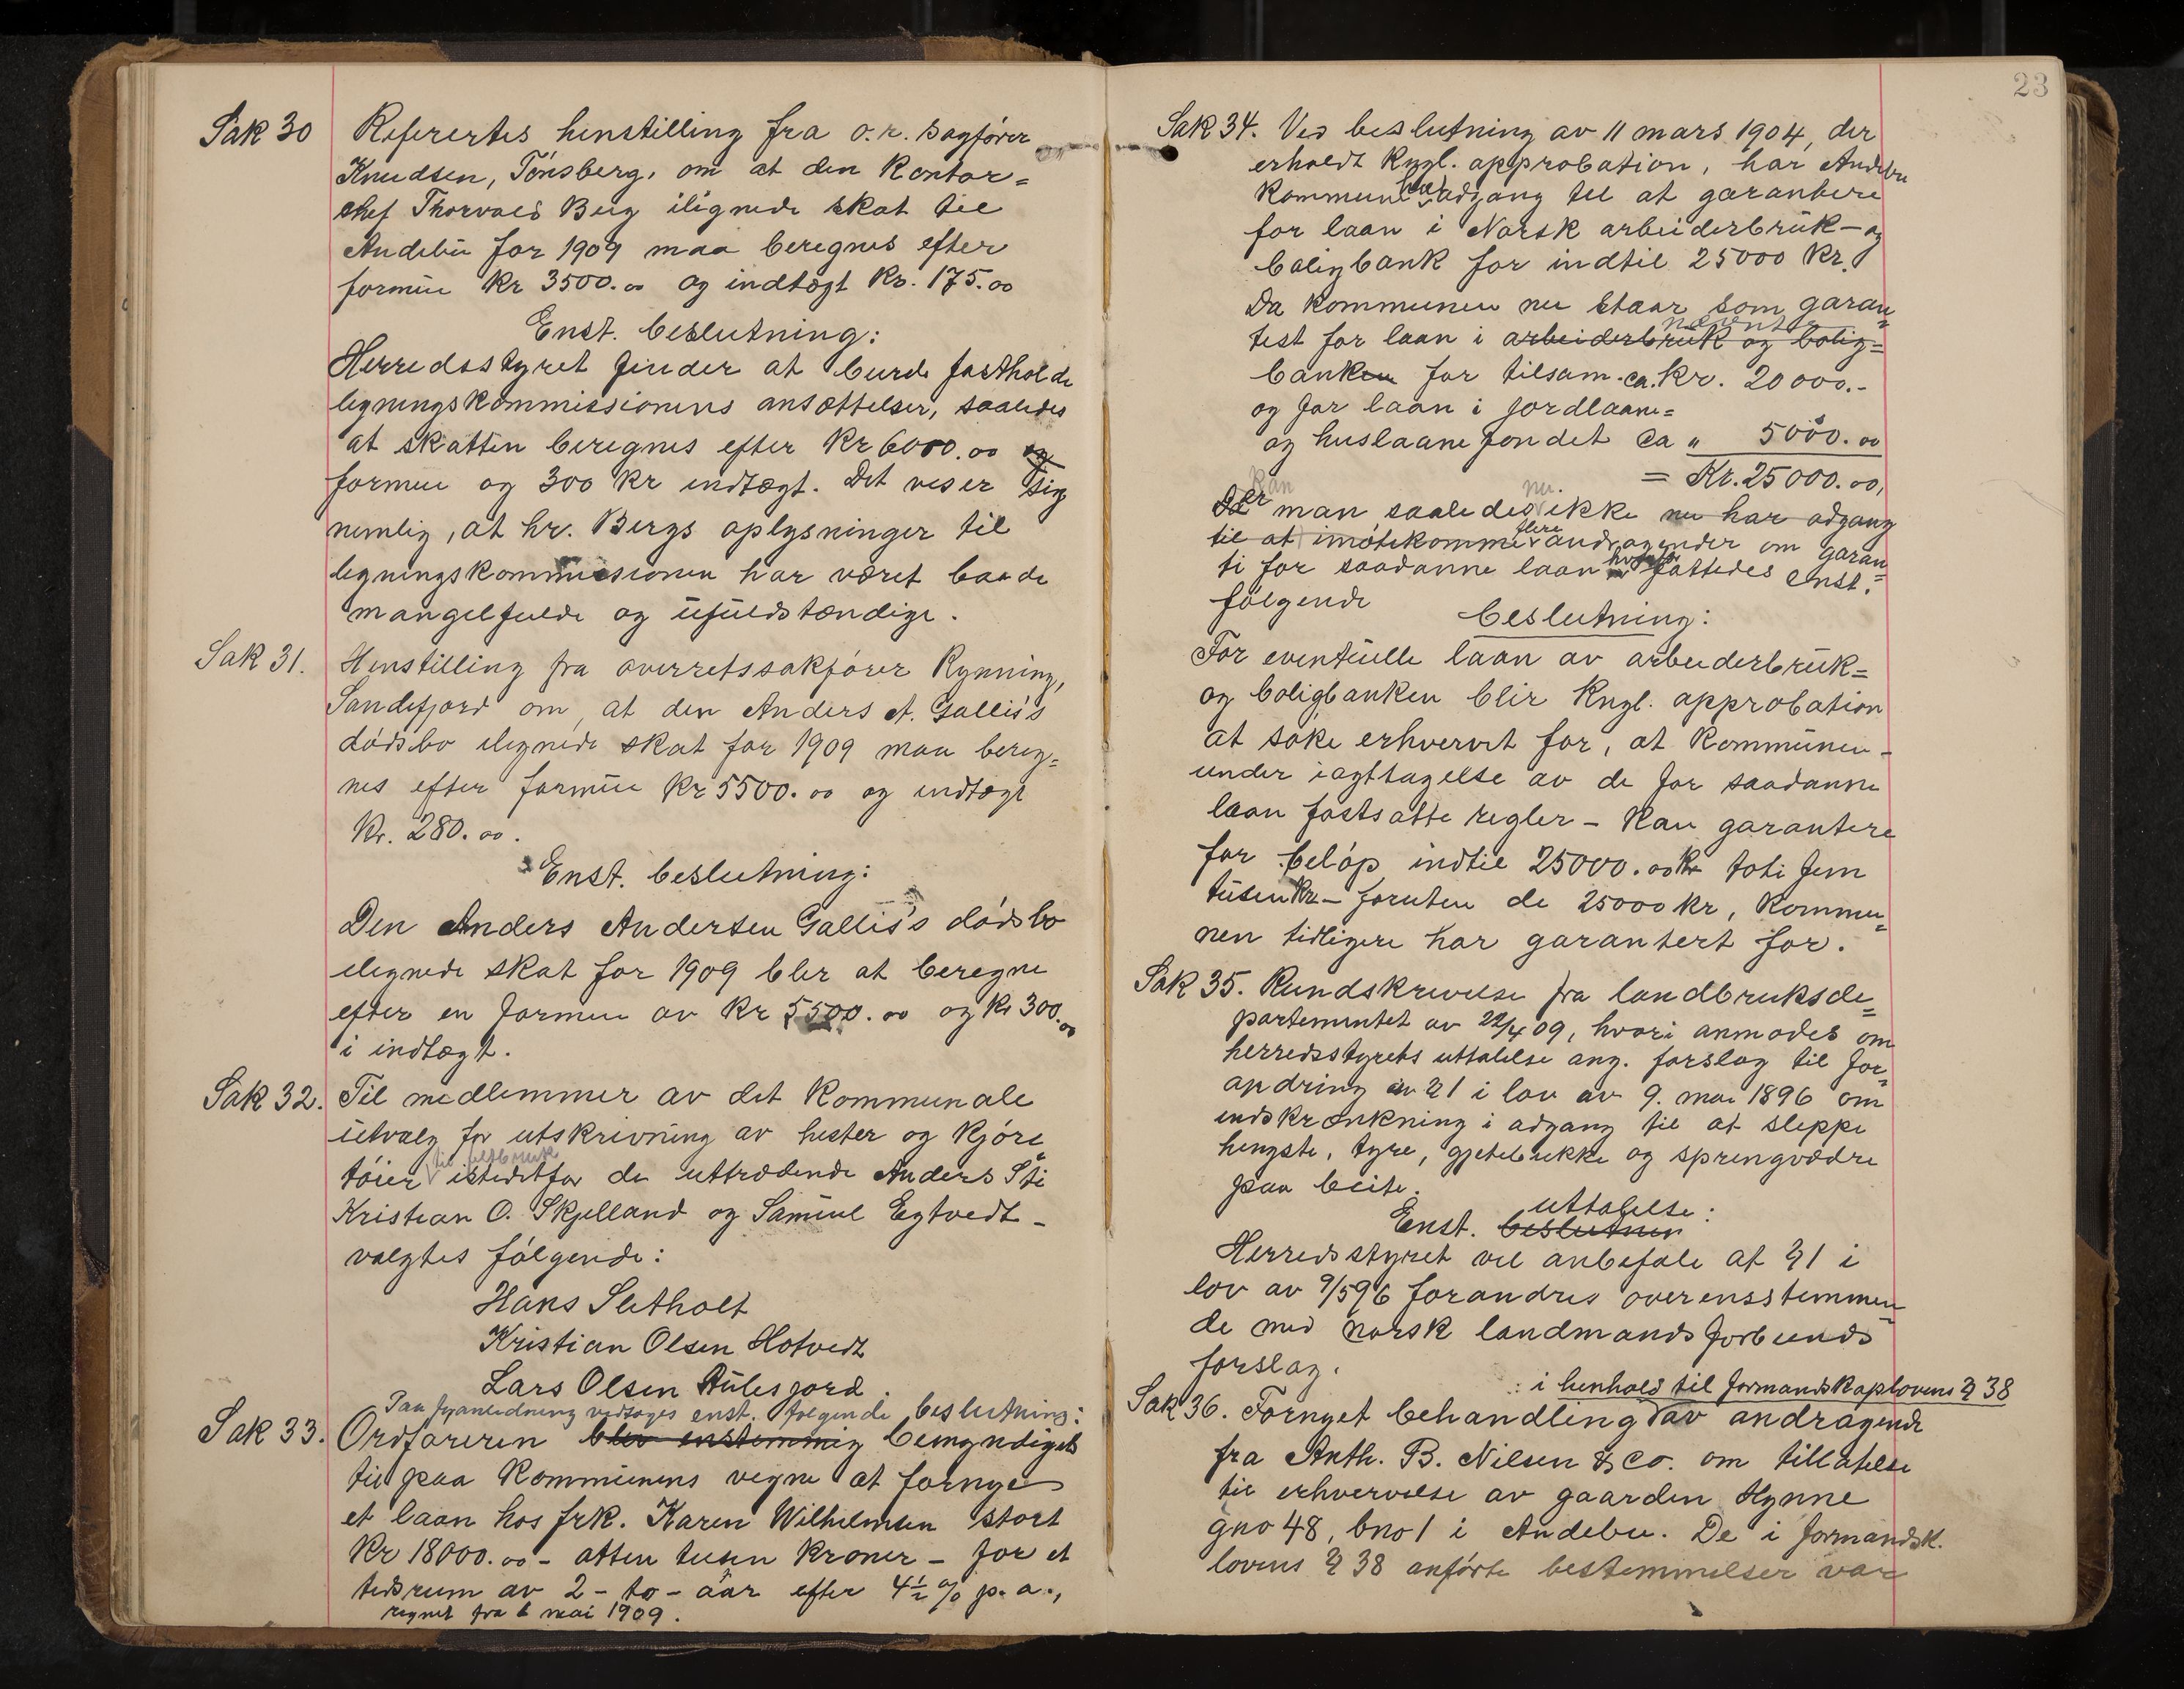 Sak 30 Referertes henstilling fra o.r. sagfører
Knudsen, Tönsberg, om at den Kontor=
chef Thorvald Berg ilignede skat til
Andebu for 1909 maa beregnes efter
formue Kr 3500.00 og indtægt Kr. 175.00
Enst. beslutning:
Herredsstyret finder at burde fastholde
ligningskommissionens ansættelser, saaledes
at skatten beregnes efter Kr 6000.00 og
formue og 300 Kr indtægt. Det viser sig
nemlig, at hr. Bergs oplysninger til
ligningskommissionen har været baade
mangelfulde og ufuldstændige.
Sak 31. Henstilling fra overretssakfører Rynning,
Sandefjord om, at den Anders A. Gallis's
dødsbo ilignede skat for 1909 maa bereg=
nes efter formue Kr 5500.00 og indtægt
Kr. 280.00.
Enst. beslutning:
Den Anders Andersen Gallis's dødsbo
ilignede skat for 1909 blir at beregne
efter en formue av Kr 5500.00 og Kr 300.00
i indtægt.
Sak 32. Til medlemmer av det Kommunale
utvalg for utskrivning av hester og Kjöre
til feltbruk
töier istedetfor de uttrædende Anders Sti
Kristian O. Skjelland og Samuel Egtvedt -
valgtes følgende:
Hans Slitholt
Kristian Olsen Hotvedt
Lars Olsen Aulesjord.
Paa foranledning vedtoges enst. følgende beslutning:
Sak 33. Ordføreren blev enstemmig bemyndiget
til paa Kommunens vegne at fornye
et laan hos frk. Karen Wilhelmsen stort
Kr 18000.00 - atten tusen kroner - for et
tidsrum av 2 - to - aar efter 4½ % p. a.,
regnet fra 6 mai 1909.
23
Sak 34. Ved beslutning av 11 mars 1904, der
erholdt Kngl. approbation, har Andebu
Kommune hat adgang til at garantere
for laan i Norsk arbeiderbruk - og
boligbank for indtil 25000 Kr.
Da Kommunen nu staar som garan=
nævnte
tist for laan i arbeiderbruk og bolig=
banken for tilsam. ca. Kr. 20000.-
og for laan i jordlaane=
og huslaanefondet ca " 5000.00
= Kr. 25000.00,
kan nu.
Der man saaledes ikke nu har adgang
flere
til at imötekomme andragender om garan=
ti for saadanne laan hvorfor fattedes enst.
følgende
beslutning:
For eventuelle laan av arbeiderbruk=
og boligbanken blir Kngl. approbation
at søke erhvervet for, at Kommunen -
under iagttagelse av de for saadanne
laan fastsatte regler - Kan garantere
for belöp indtil 25000.00 Kr toti fem
tusen Kr - foruten de 25000 Kr, Kommu=
nen tidligere har garantert for.
Sak 35. Rundskrivelse fra landbruksde=
partementet av 22/4 09, hvori anmodes om
herredsstyrets uttalelse ang. forslag til for=
andring av § 1 i lov av 9. mai 1896 om
indskrænkning i adgang til at sleppe
hengste, tyre, gjetebukke og sprengvædre
paa beite.
uttalelse:
Enst. beslutnin
Herredsstyret vil anbefale at § 1 i
lov av 9/5 96 forandres overensstemmen=
de med norsk landmandsforbunds
forslag.
: i henhold til formandskaplovens § 38
Sak 36. Fornyet behandling av andragende
fra Anth. B. Nilsen & Co. om tillatelse
til erhvervelse av gaarden Hynne
gno 48, bno 1 i Andebu. De i formandsk.
lovens § 38 anførte bestemmelser var